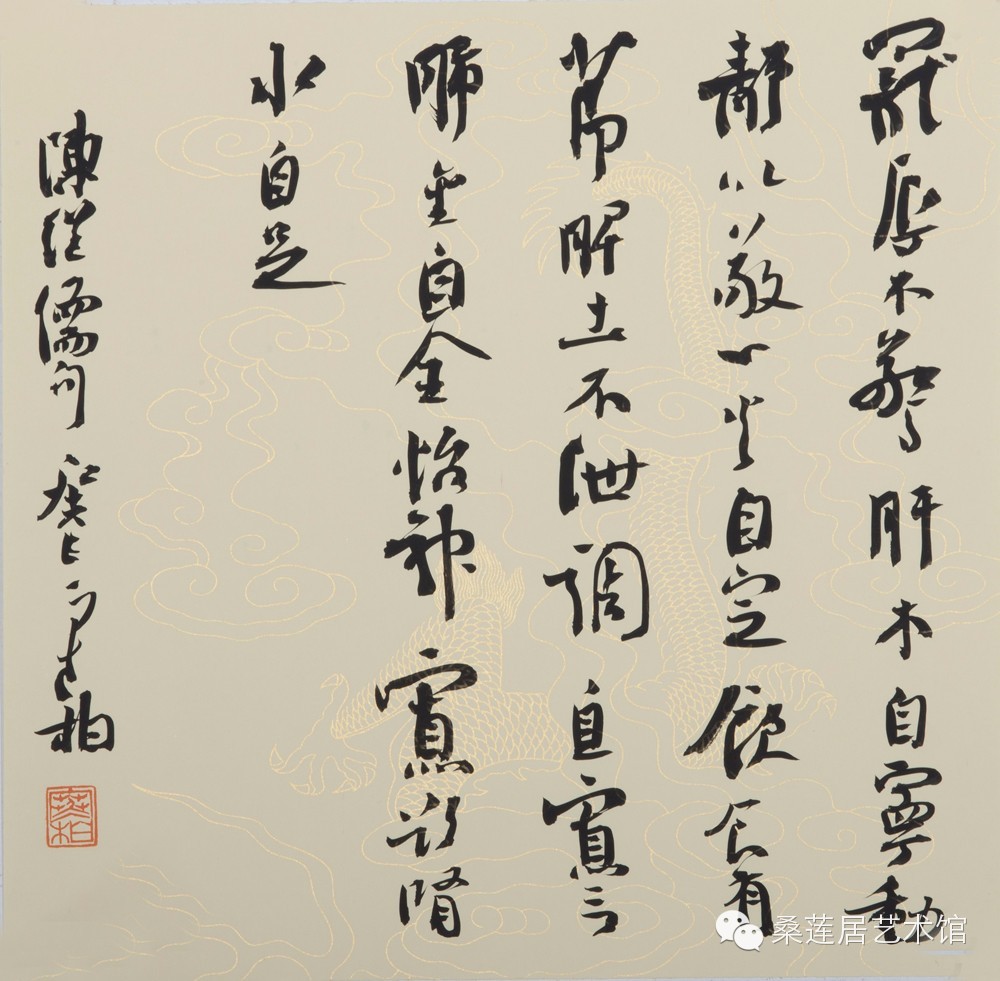 寵辱不驚肝木自寧動
靜以敬心火自定飲食有
節脾土不泄調息寡言
肺金自全怡神寡欲腎
水自足
陳继儒句 癸巳 柏
桑莲居艺术馆